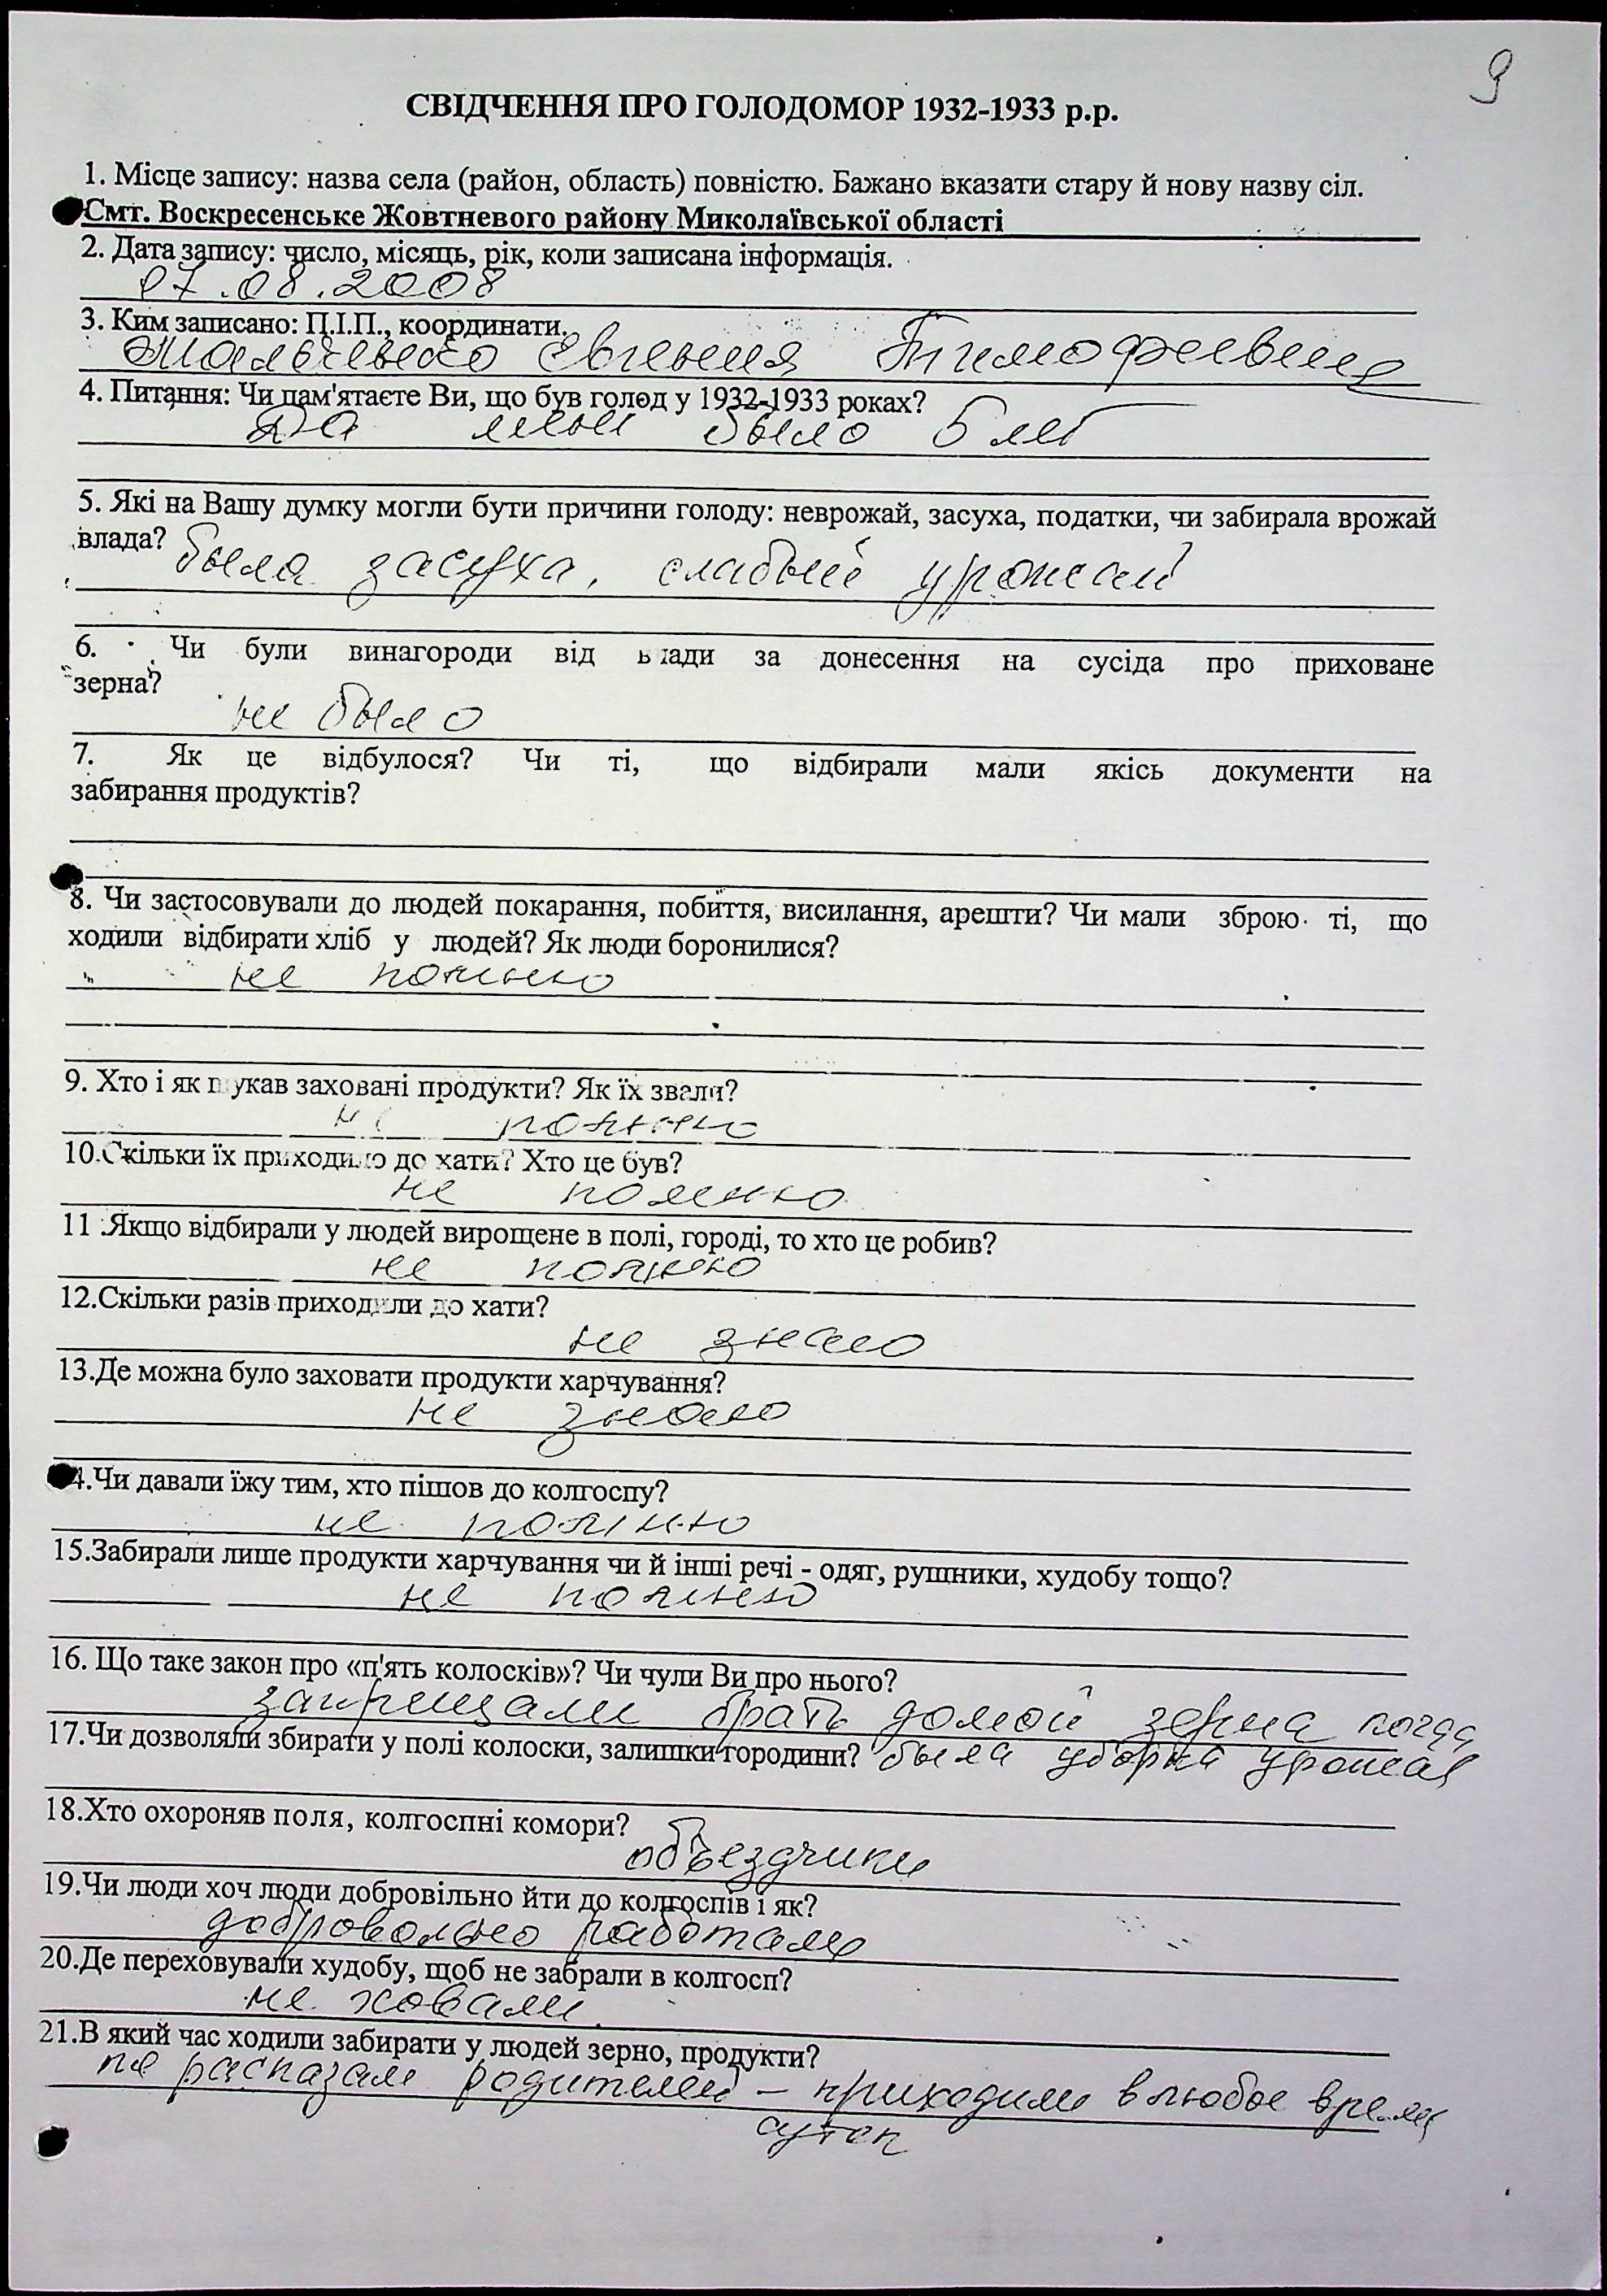 9
СВІДЧЕННЯ ПРО ГОЛОДОМОР 1932-1933 р.р.
1. Місце запису: назва села (район, область) повністю. Бажано вказати стару й нову назву сіл.
Смт. Воскресенське Жовтневого району Миколаївської області
2. Дата запису: число, місяць, рік, коли записана інформація.
07.08.2008
3. Ким записано: П.І.П., координати.
Евгения Тимофеевна
4. Питання: Чи пам'ятаєте Ви, що був голод у 1932-1933 роках?
Да мне было 5 лет
5. Які на Вашу думку могли бути причини голоду: неврожай, засуха, податки, чи забирала врожай
влада?
была засуха, слабый урожай
6. Чи були винагороди від влади за донесення на сусіда про приховане
зерна?
не было
7. Як це відбулося? Чи ті, що відбирали мали якісь документи на
забирання продуктів?
8. Чи застосовували до людей покарання, побиття, висилання, арешти? Чи мали зброю ті, що
ходили відбирати хліб у людей? Як люди боронилися?
не помню
9. Хто і як шукав заховані продукти? Як їх звали?
не помню
10.Скільки їх приходило до хати? Хто це був?
не помню
11 .Якщо відбирали у людей вирощене в полі, городі, то хто це робив?
не помню
12.Скільки разів приходили до хати?
не знаю
13.Де можна було заховати продукти харчування?
не знаю
14.Чи давали їжу тим, хто пішов до колгоспу?
не помню
15.Забирали лише продукти харчування чи й інші речі - одяг, рушники, худобу тощо?
не помню
16. Що таке закон про «п'ять колосків»? Чи чули Ви про нього?
запрещали брать домой зерна когда
17.Чи дозволяли збирати у полі колоски, залишки городини? была уборка урожая
18.Хто охороняв поля, колгоспні комори?
объездчики
19.Чи люди хоч люди добровільно йти до колгоспів і як?
добровольно работали
20.Де переховували худобу, щоб не забрали в колгосп?
не ховали.
21.В який час ходили забирати у людей зерно, продукти?
по расказам родителей – приходили в любое время
суток